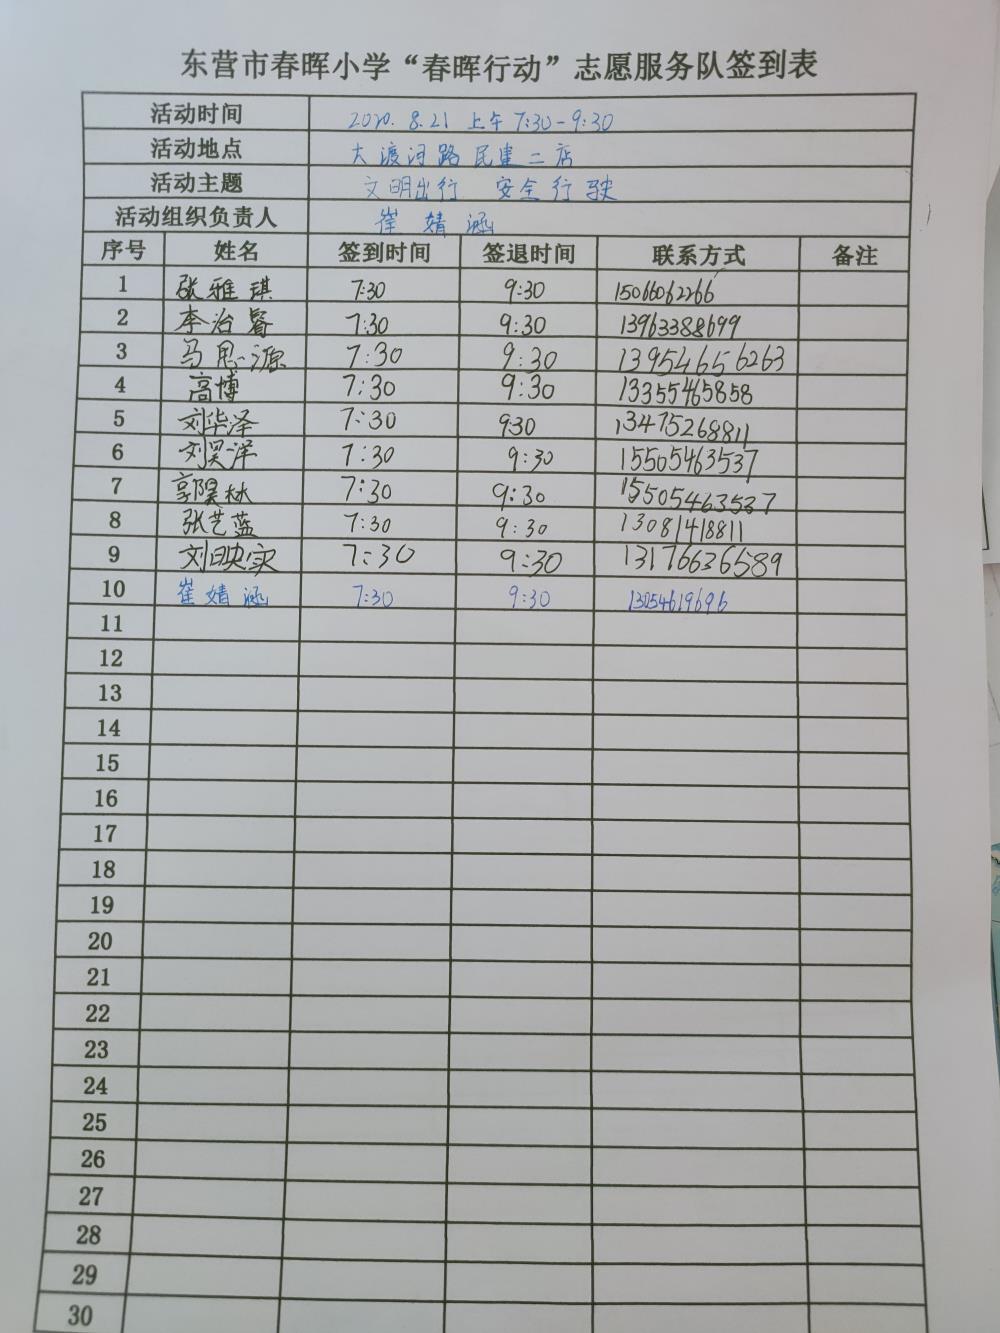 东营市春晖小学“春晖行动”志愿服务队签到表
活动时间 2020. 8.21 上午 7:30-9:30
活动地点 大渡河路民建二店
活动主题 文明出行 安全行驶
活动组织负责人 崔婧涵
序号 姓名 签到时间 签退时间 联系方式 备注
1 张雅琪 7:30 9:30 15066062266
2 李治睿 7:30 9:30 13963388699
3 马思源 7:30 9:30 13954656263
4 高博 7:30 9:30 13355465858
5 刘华泽 7:30 9:30 13475268811
6 刘昊洋 7:30 9:30 15505463537
7 郭昊林 7:30 9:30 15505463537
8 张艺蓝 7:30 9:30 13081418811
9 刘映实 7:30 9:30 13176636589
10 崔婧涵 7:30 9:30 13054619696
11
12
13
14
15
16
17
18
19
20
21
22
23
24
25
26
27
28
29
30